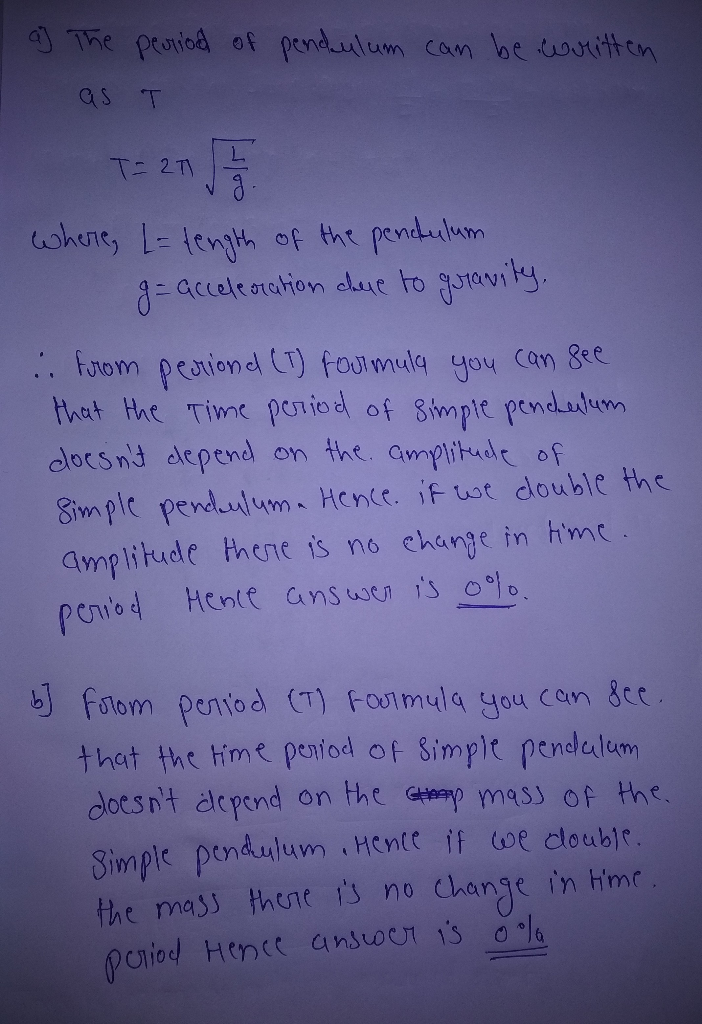 a] The period of pendulum can be written
as T
T = 2π √(L/g).
where, L = length of the pendulum
g = acceleration due to gravity.
∴ from periond (T) formula you can see
that the Time period of simple pendulum
doesn't depend on the. amplitude of
simple pendulum. Hence. if we double the
amplitude there is no change in time.
period Hence answer is 0%.
b] from period (T) formula you can see.
that the time period of simple pendulum
doesn't depend on the mass of the.
simple pendulum. Hence if we double.
the mass there is no change in time.
period Hence answer is 0%